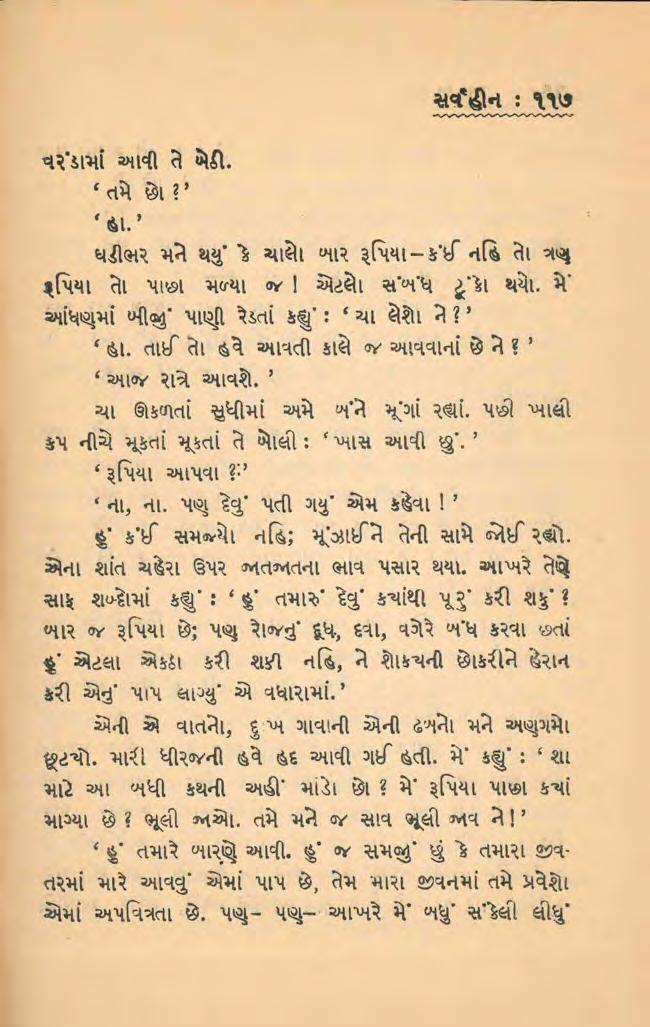 સર્વહીન : ૧૧૭
વરંડામાં આવી તે બેઠી.
‘ તમે છો ?’
‘ હા. ’
ઘડીભર મને થયું કે ચાલો બાર રૂપિયા – કંઈ નહિ તો ત્રણ
રૂપિયા તો પાછા મળ્યા જ ! એટલો સંબંધ ટૂંકો થયો. મેં
આંધણમાં બીજું પાણી રેડતાં કહ્યું : ‘ ચા લેશો ને ?’
‘ હા. તાઈ તો હવે આવતી કાલે જ આવવાનાં છે ને ? ’
‘ આજ રાત્રે આવશે. ’
ચા ઊકળતાં સુધીમાં અમે બંને મૂગાં રહ્યાં. પછી ખાલી
કપ નીચે મૂકતાં મૂકતાં તે બોલી : ‘ ખાસ આવી છું. ’
‘ રૂપિયા આપવા ?’
‘ ના, ના. પણ દેવું પતી ગયું એમ કહેવા ! ’
હું કંઈ સમજ્યો નહિ; મૂંઝાઈને તેની સામે જોઈ રહ્યો.
એના શાંત ચહેરા ઉપર જાતજાતના ભાવ પસાર થયા. આખરે તેણે
સાફ શબ્દોમાં કહ્યું : ‘ હું તમારું દેવું કયાંથી પૂરું કરી શકું ?
બાર જ રૂપિયા છે; પણ રોજનું દૂધ, દવા, વગેરે બંધ કરવા છતાં
હું એટલા એકઠા કરી શકી નહિ, ને શોકચની છોકરીને હેરાન
કરી એનું પાપ લાગ્યું એ વધારામાં. ’
એની એ વાતનો, દુઃખ ગાવાની એની ઢબનો મને અણગમો
છૂટયો. મારી ધીરજની હવે હદ આવી ગઈ હતી. મેં કહ્યું : ‘ શા
માટે આ બધી કથની અહીં માંડો છો ? મેં રૂપિયા પાછા કયાં
માગ્યા છે ? ભૂલી જાઓ. તમે મને જ સાવ ભૂલી જાવ ને !’
‘ હું તમારે બારણે આવી. હું જ સમજું છું કે તમારા જીવ-
તરમાં મારે આવવું એમાં પાપ છે, તેમ મારા જીવનમાં તમે પ્રવેશો
એમાં અપવિત્રતા છે. પણ– પણ– આખરે મેં બધું સંકેલી લીધું